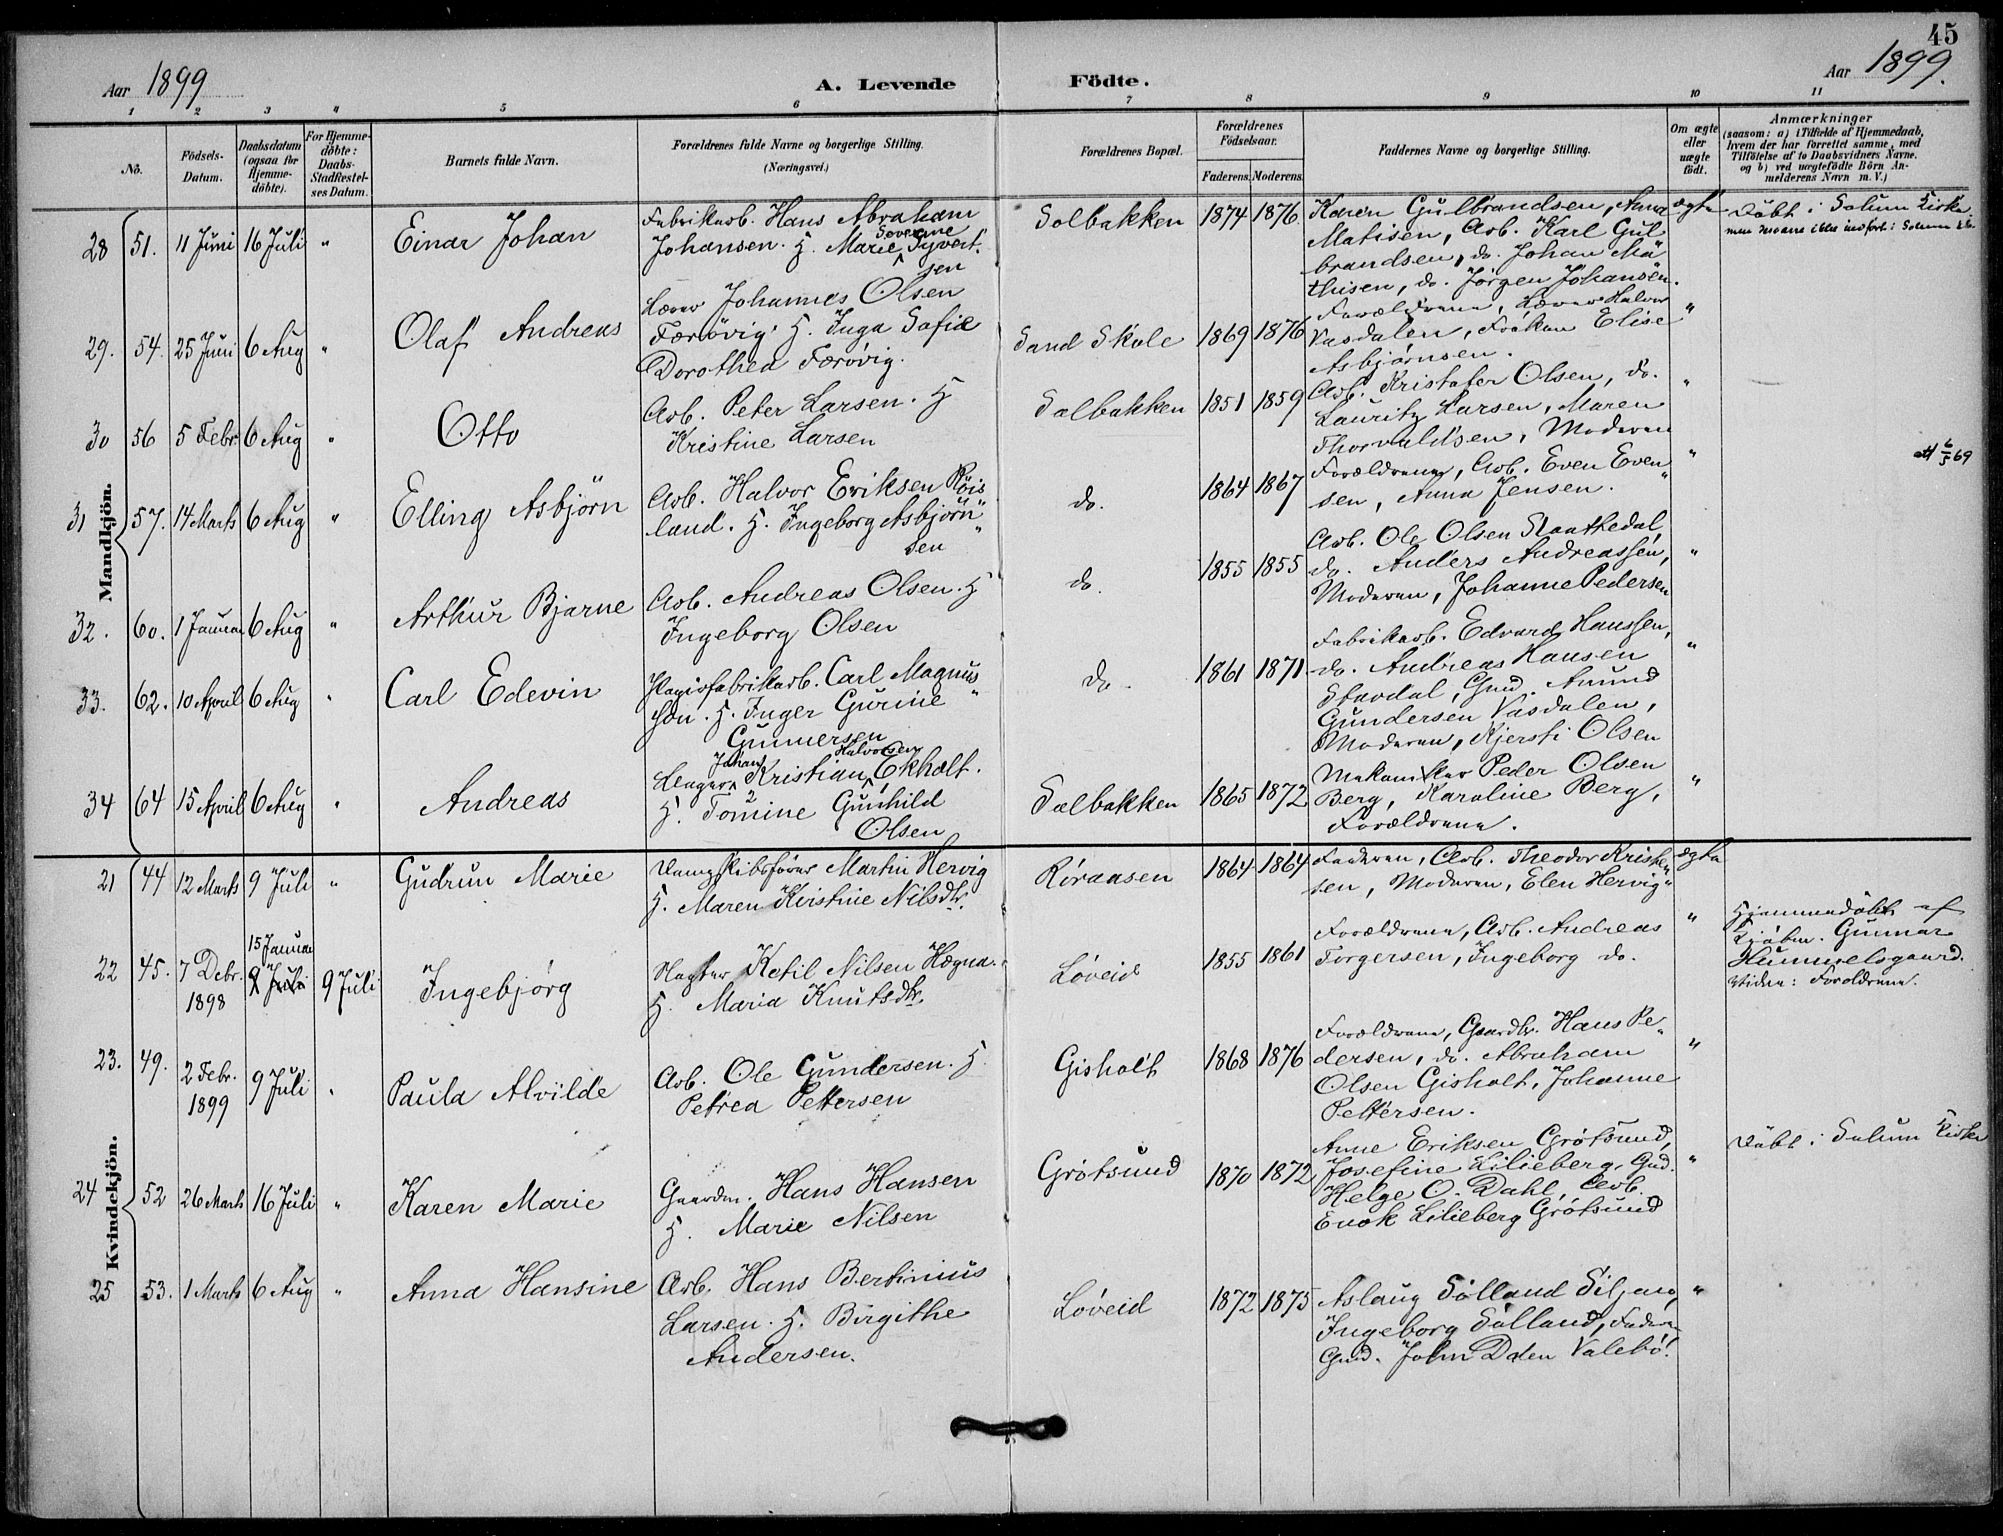 45
Aar 1899
A. Levende
Födte.
Aar 1899.
1 2 3 4 5 6 7 8 9 10 11
No.
Födsels-
Datum.
Daabsdatum
(ogsaa for
Hjemme-
döbte).
For Hjemme-
döbte:
Daabs-
Stadfestel-
ses Datum.
Barnets fulde Navn.
Forældrenes fulde Navne og borgerlige Stilling.
(Næringsvei.)
Forældrenes Bopæl.
Forældrenes
Födselsaar.
Faderens. Moderens.
Faddernes Navne og borgerlige Stilling.
Om ægte
eller
uægte
födt.
Anmærkninger
(saasom: a) i Tilfælde af Hjemmedaab,
hvem der har forrettet samme, med
Tilföielse af to Daabsvidners Navne.
og b) ved uægtefödte Börn An-
melderens Navn m. V.)
Mandkjön.
28 51. 11 Juni 16 Juli " Einar Johan
Fabrikarb. Hans Abraham
Johansen. H. Marie Syvert-
sen
Solbakken 1874 1876
Karen Gulbrandsen, Anna
Matisen, Arb. Karl Gul
brandsen, do. Johan Ma
thisen, do. Jörgen Johansen.
ægte
Döbt i Solum Kirke
29. 54. 25 Juni 6 Aug " Olaf Andreas
Lærer Johannes Olsen
Færövig. H. Inga Sofie
Dorothea Færövig.
Sand Skole 1869 1876
Forældrene, Lærer Halvor
Vasdalen, Fröken Elise
Asbjörnsen.
"
30 56 5 Febr. 6 Aug " Otto
Arb. Peter Larsen. H
Kristine Larsen
Solbakken 1851 1859
Arb. Kristofer Olsen, do.
Lauritz Larsen, Maren
Thorvaldsen, Moderen
"
31 57. 14 Marts 6 Aug " Elling Asbjörn
Arb. Halvor Eriksen Röis
land. H. Ingeborg Asbjörn"
sen
do. 1864 1867
Forældrene, Arb. Even Even"
sen, Anna Jensen.
"
6/5 69
32. 60. 1 Januar 6 Aug " Arthur Bjarne
Arb. Andreas Olsen. H
Ingeborg Olsen
do. 1855 1855
Arb. Ole Olsen Slaathedal,
do. Anders Andreassen,
Moderen, Johanne Pedersen
"
33. 62. 10 April 6 Aug " Carl Edevin
Papirfabrikarb. Carl Magnus
sön. H. Inger Gurine
Gunnersen
do. 1861 1871.
Fabrikarb. Edvard Hanssen,
do. Andreas Hansen
Stavdal, Gmd. Amund
Gundersen Vasdalen,
Moderen, Kjersti Olsen
"
34 64 15 April 6 Aug " Andreas
Johan Halvorsen
Kristian Ekholt.
H. Tomine Gunhild
Olsen
Solbakken 1865 1872
Mekaniker Peder Olsen
Berg, Karoline Berg,
Forældrene.
"
Kvindekjön.
21 44 12 Marts 9 Juli " Gudrun Marie
Dampskibsförer Martin Hervig
H. Maren Kirstine Nilsdtr.
Röraasen 1864 1864
Faderen, Arb. Theodor Krist"
sen, Moderen, Elen Hervig"
ægte
22 45. 7 Debr.
1898
15 Januar
9 Juli
9 Juli
Ingebjörg
Ketil Nilsen Hægna.
H. Maria Knutsdtr.
Löveid 1855 1861
Forældrene, Arb. Andreas
Torgersen, Ingeborg do.
"
Hjemmedöbt af
Kjöbm. Gunnar
Hummelsgaard.
Vidne: Foroldrene.
23. 49. 2 Febr.
1899
9 Juli " Paula Alvilde
Arb. Ole Gundersen. H.
Petrea Pettersen
Gisholt 1868 1876
Forældrene, Gaardbr. Hans Pe"
dersen, do. Abraham
Olsen Gisholt, Johanne
Pettersen.
"
24 52 26 Marts 16 Juli " Karen Marie
Gaardm. Hans Hansen
H. Marie Nilsen
Grötsund 1870 1872
Anne Eriksen Grötsund,
Josefine Lilieberg, Gmd.
Helge O. Dahl, Arb.
Enok Lilieberg Grötsund
"
Döbt i Solum Kirke
25 53. 1 Marts 6 Aug " Anna Hansine
Arb. Hans Bertinius
Larsen. H. Birgithe
Andersen.
Löveid 1872 1875
Aslaug Sölland Siljan,
Ingeborg Sölland, Faderen
Gmd. John Dalen Valebö.
"